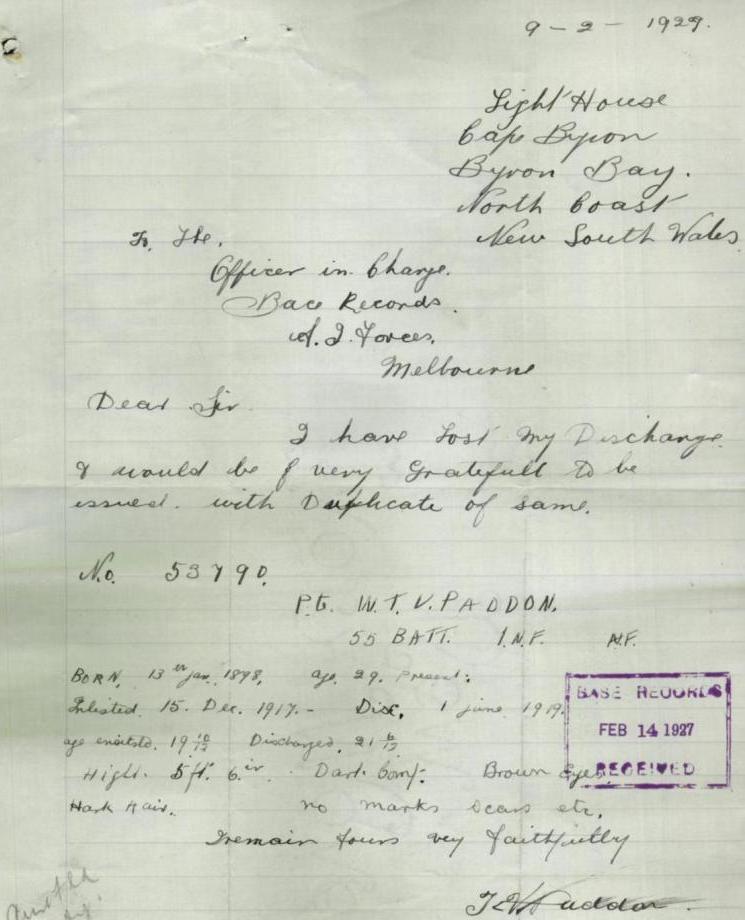 9 - 2 - 1929.
Light House
Cape Byron
Byron Bay.
North Coast
New South Wales
To, The,
Officer in Charge.
Bace Records.
A. I. Forces,
Melbourne
Dear Sir
I have Lost My Discharge
& would be very Gratefull to be
issued. with Duplicate of same.
No. 53790.
Pt. W.T.V. PADDON.
55 BATT. I.N.F.
BORN, 13th Jan, 1898, age 29. Present:
Enlisted. 15. Dec. 1917. - Disc, 1 June 1919.
BASE RECORDS
FEB 14 1927
RECEIVED
age 19 Discharged, 21
Hight. 5ft. 6in Dark Comp. Brown Eyes
Hark Hair. no marks scars etc.
I remain Yours very faithfully